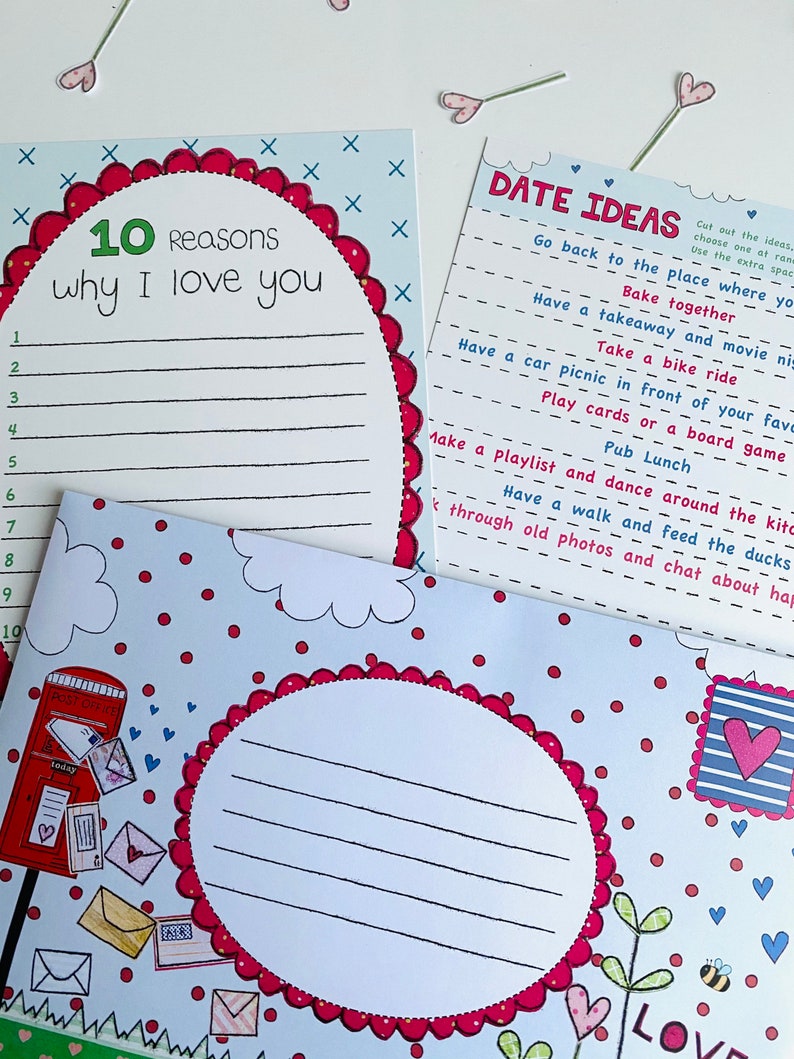 10 Reasons
why I love you
1
2
3
4
5
6
7
8
9
10
DATE IDEAS
Cut out the ideas,
choose one at
Use the extra
Go back to the place where
Bake together
Have a takeaway and movie
Take a bike ride
Have a car picnic in front of your
Play cards or a board game
Pub Lunch
Make a playlist and dance around the
Have a walk and feed the ducks
through old photos and chat about
POST OFFICE
today
LOVE